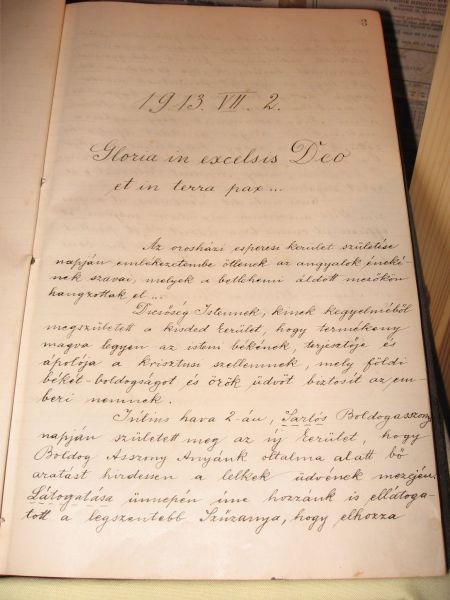 3
1913. VII. 2.
Gloria in excelsis Deo
et in terra pax...
Az orosházi esperesi kerület születése
napján emlékezetembe ötlenek az angyalok éneké-
nek szavai, melyek a betlehemi áldott mezőkön
hangzottak el...
Dicsőség Istennek, kinek kegyelméből
megszületett a kisded Kerület, hogy termékeny
magva legyen az isteni békének, terjesztője és
ápolója a krisztusi szellemnek, mely földi
békét-boldogságot és örök üdvöt biztosít az em-
beri nemnek.
Július hava 2-án, Sarlós Boldogasszony
napján született meg az új Kerület, hogy
Boldog Asszony Anyánk oltalma alatt bő
aratást hirdessen a lelkek üdvének mezején.
Látogatása ünnepén íme hozzánk is elláto­ga-
tott a legszentebb Szűzanya, hogy elhozza